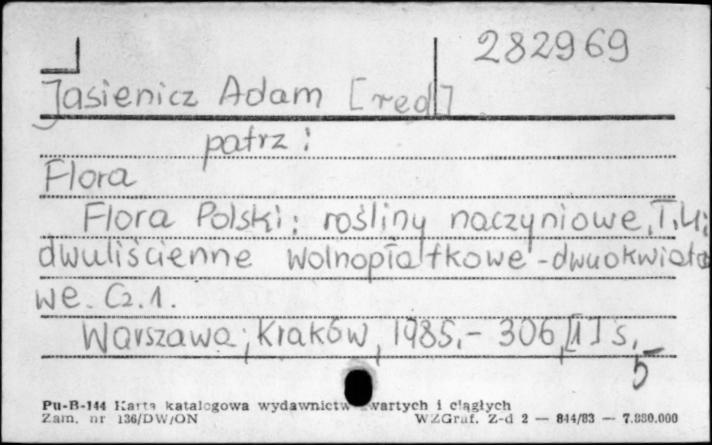 282969
Jasienicz Adam [red]
patrz:
Flora
Flora Polski: rośliny naczyniowe. T.4:
dwuliścienne wolnopłatkowe - dwuokwiato
we. Cz.1.
Warszawa; Kraków, 1985. - 306, [1] s.
5
Pu-B-144 Karta katalogowa wydawnictw zwartych i ciągłych
Zam. nr 136/DW/ON WZGraf. Z-d 2 — 844/83 — 7.880.000